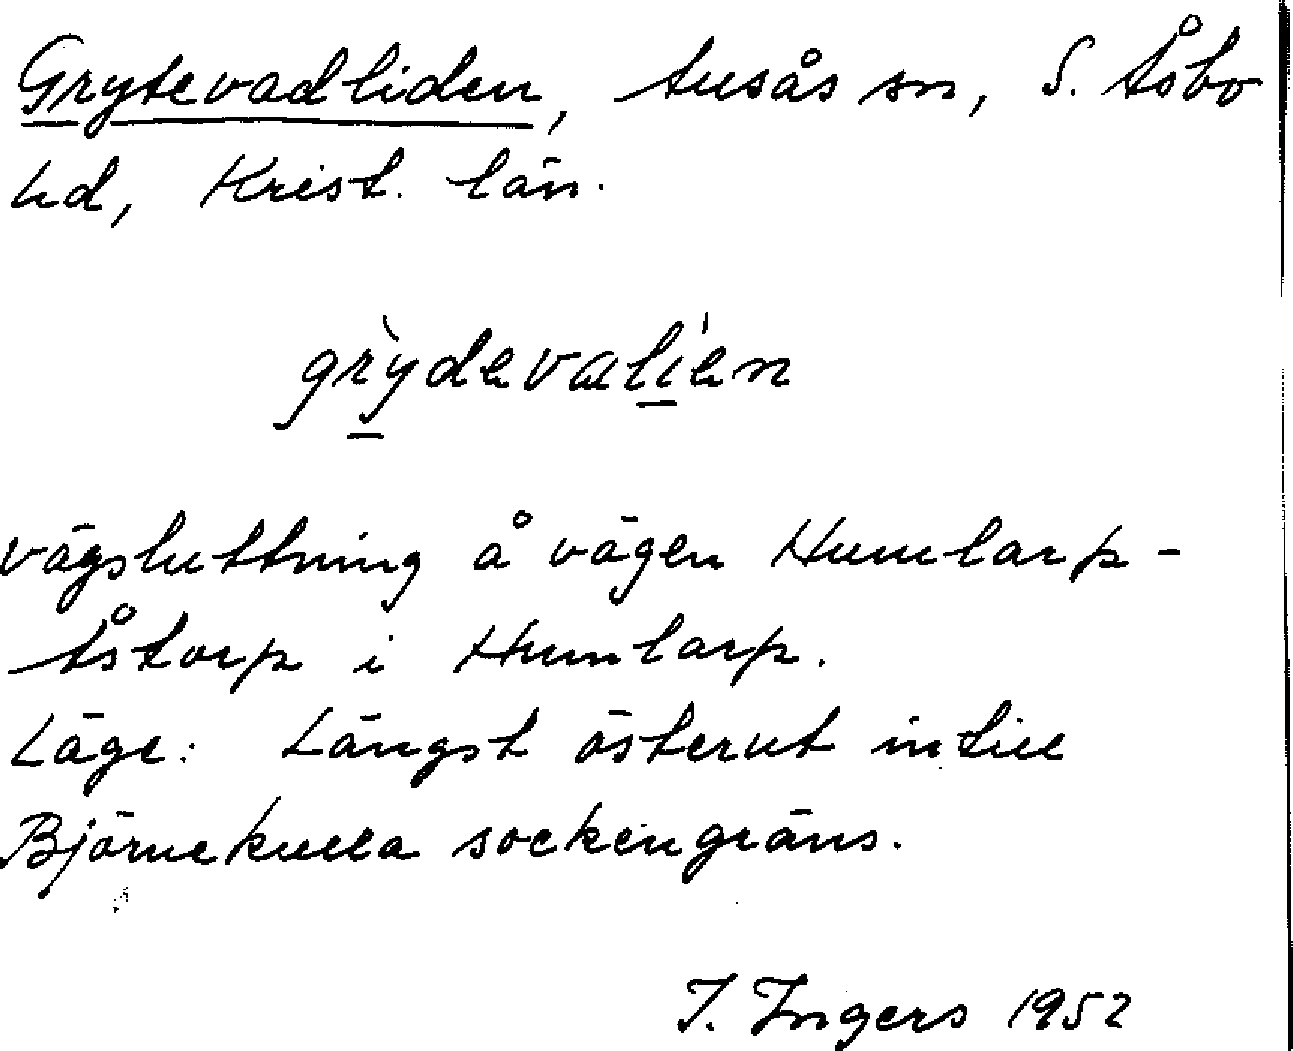 Grytevadliden, Ausås sn, S. Åsbo
hd, Krist. län.
grỳdevalíen
vägsluttning å vägen Humlarp-
Åstorp i Humlarp.
Läge: Längst österut intill
Björnekulla sockengräns.
I. Ingers 1952